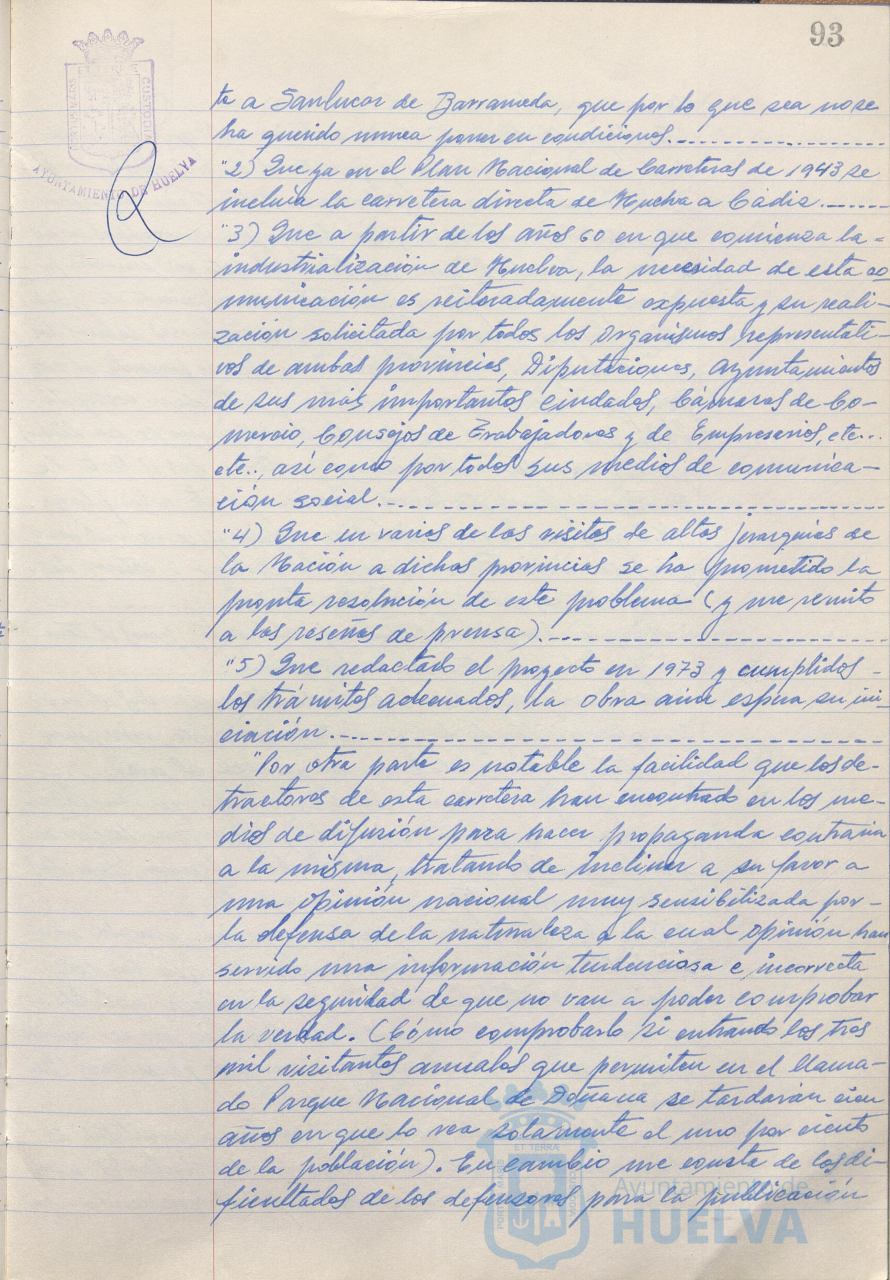 93
CUSTODIA
AYUNTAMIENTO DE HUELVA
ta a Sanlucar de Barrameda, que por lo que sea no se
ha querido nunca poner en condiciones.
"2) Que ya en el Plan Nacional de Carreteras de 1943 se
incluía la carretera directa de Huelva a Cádiz.
"3) Que a partir de los años 60 en que comienza la-
industrialización de Huelva, la necesidad de esta co
municación es reiteradamente expuesta y su reali-
zación solicitada por todos los organismos representati-
vos de ambas provincias, Diputaciones, Ayuntamientos
de sus más importantes ciudades, Cámaras de Co-
mercio, Consejos de Trabajadores y de Empresarios, etc...
etc.., así como por todos sus medios de comunica-
ción social.
"4) Que en varias de las visitas de altas jerarquías de
la Nación a dichas provincias se ha prometido la
pronta resolución de este problema (y me remito
a las reseñas de prensa).
"5) Que redactado el proyecto en 1973 y cumplidos-
los trámites adecuados, la obra aún espera su ini-
ciación.
"Por otra parte es notable la facilidad que los de-
tractores de esta carretera han encontrado en los me-
dios de difusión para hacer propaganda contraria
a la misma, tratando de inclinar a su favor a
una opinión nacional muy sensibilizada por-
la defensa de la naturaleza a la cual opinión han
servido una información tendenciosa e incorrecta
en la seguridad de que no van a poder comprobar
la verdad. (Cómo comprobarlo si entrando los tres
mil visitantes anuales que permiten en el llama-
do Parque Nacional de Doñana se tardarán cien
años en que lo vea solamente el uno por ciento
de la población). En cambio me consta de las di-
ficultades de los defensores para la publicación
ET TERRA
Ayuntamiento de
HUELVA